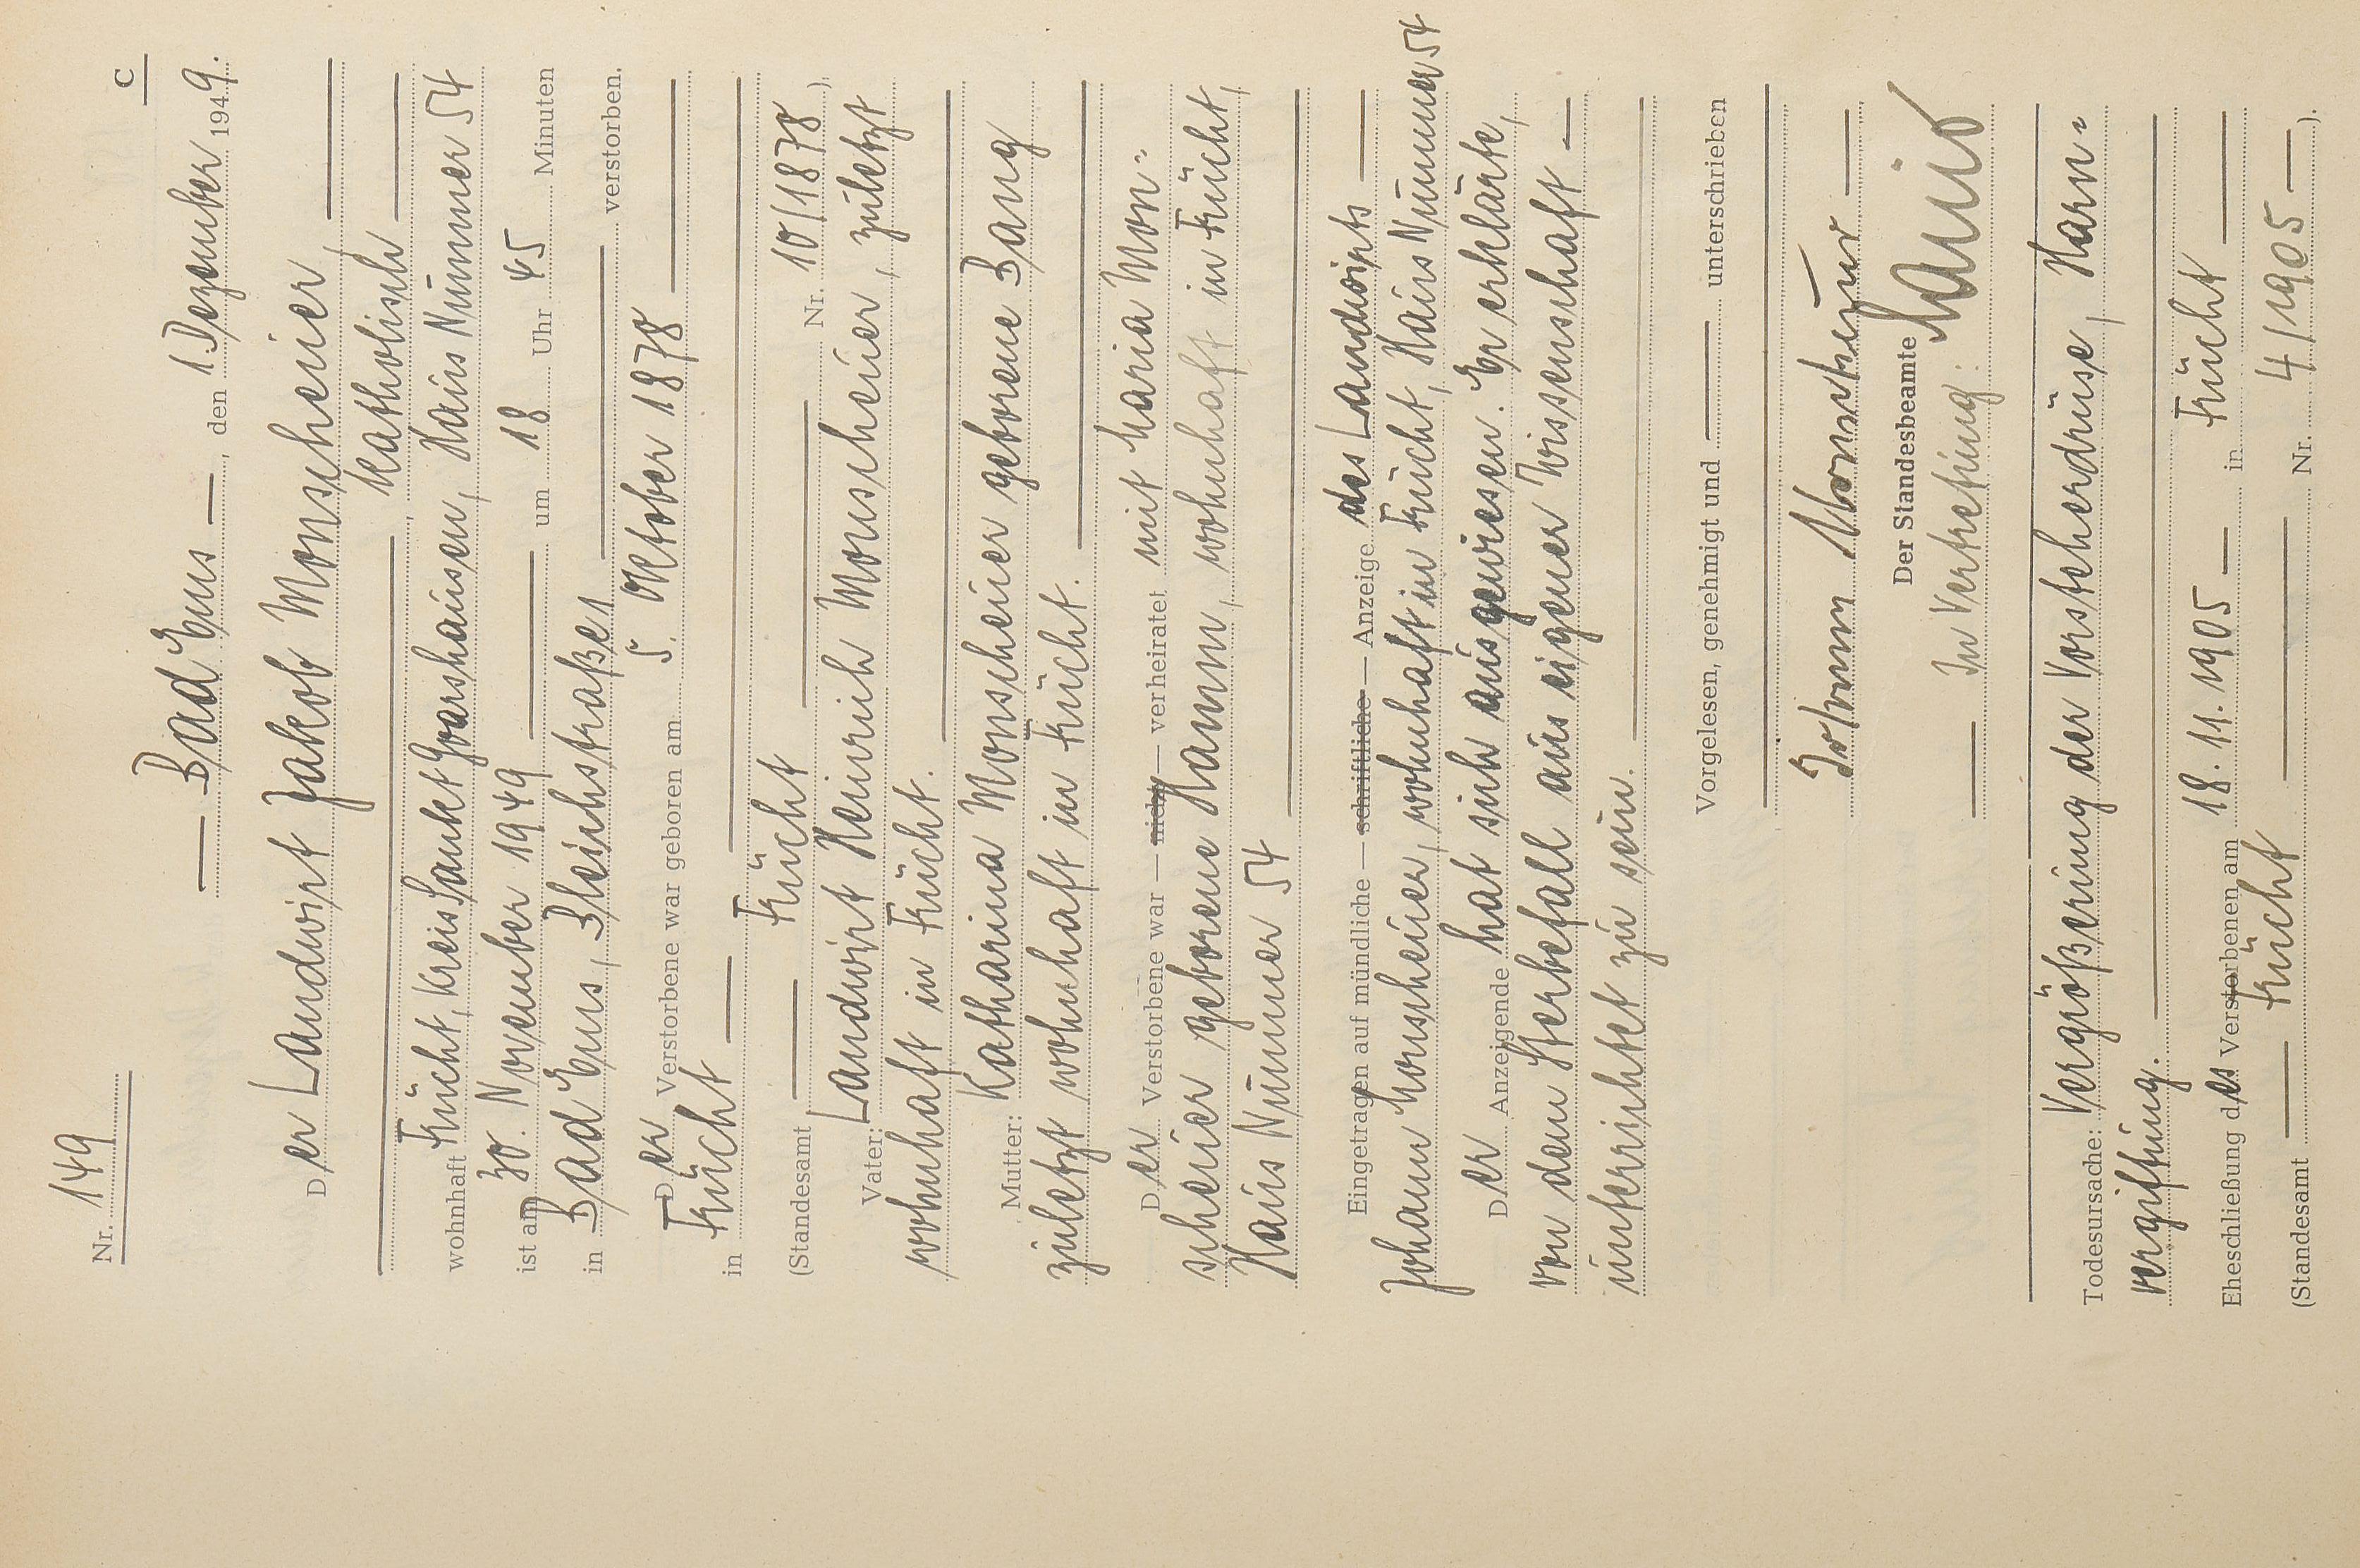 Nr. 149
C
Bad Ems, den 1. Dezember 1949.
Der Landwirt Jakob Monscheuer
, katholisch
wohnhaft Frücht, Kreis Sankt Goarshausen, Haus Nummer 54
ist am 30. November 1949 um 18 Uhr 45 Minuten
in Bad Ems, Bleichstraße 1 verstorben.
Der Verstorbene war geboren am 5. Oktober 1878
in Frücht
(Standesamt Frücht Nr. 10/1878).
Vater: Landwirt Heinrich Monscheuer, zuletzt
wohnhaft in Frücht.
Mutter: Katharina Monscheuer geborene Bang
zuletzt wohnhaft in Frücht.
Der Verstorbene war — nicht — verheiratet mit Maria Mon-
scheuer geborene Hamm, wohnhaft in Frücht,
Haus Nummer 54
Eingetragen auf mündliche — schriftliche — Anzeige des Landwirts
Johann Monscheuer, wohnhaft in Frücht, Haus Nummer 54
Der Anzeigende hat sich ausgewiesen. Er erklärte,
von dem Sterbefall aus eigener Wissenschaft
unterrichtet zu sein.
Vorgelesen, genehmigt und unterschrieben
Johann Monscheuer
Der Standesbeamte
In Vertretung:
Todesursache: Vergrößerung der Vorsteherdrüse, Harn-
vergiftung.
Eheschließung des Verstorbenen am 18. 11. 1905 in Frücht
(Standesamt Frücht Nr. 4/1905).